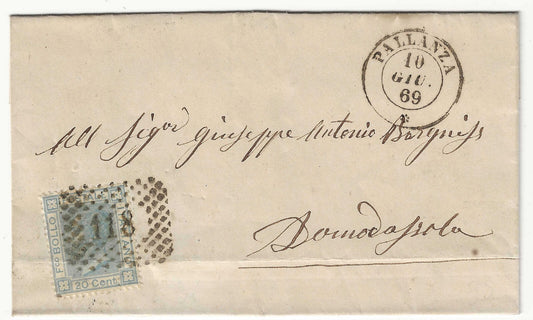 PALLANZA
10
GIU.
69
All Sigor Giuseppe Antonio Borgniss
Domodossola
118
Fco BOLLO
20 Cent